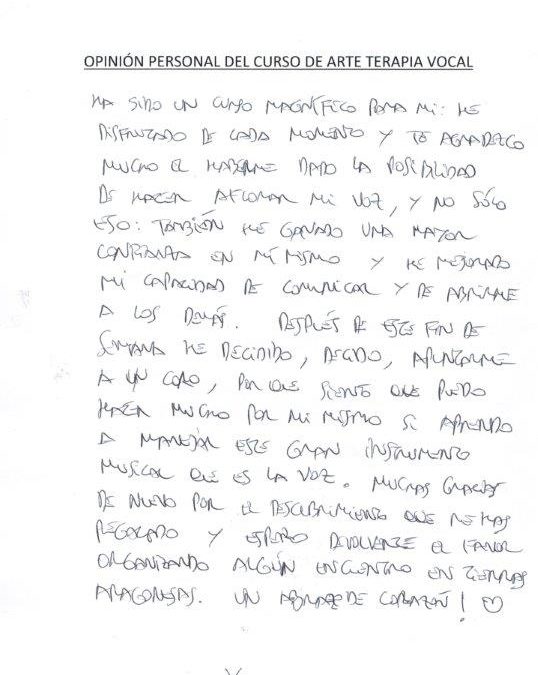 OPINIÓN PERSONAL DEL CURSO DE ARTE TERAPIA VOCAL
HA SIDO UN CURSO MAGNÍFICO PARA MI: HE
DISFRUTADO DE CADA MOMENTO Y TE AGRADEZCO
MUCHO EL HABERME DADO LA POSIBILIDAD
DE HACER AFLORAR MI VOZ, Y NO SÓLO
ESO: TAMBIÉN HE GANADO UNA MAYOR
CONFIANZA EN MÍ MISMO Y HE MEJORADO
MI CAPACIDAD DE COMUNICAR Y DE ABRIRME
A LOS DEMÁS. DESPUÉS DE ESTE FIN DE
SEMANA HE DECIDIDO, DECIDO, APUNTARME
A UN CORO, POR QUE SIENTO QUE PUEDO
HACER MUCHO POR MI MISMO SI APRENDO
A MANEJAR ESTE GRAN INSTRUMENTO
MUSICAL QUE ES LA VOZ. MUCHAS GRACIAS
DE NUEVO POR EL DESCUBRIMIENTO QUE ME HAS
REGALADO Y ESPERO DEVOLVERTE EL FAVOR
ORGANIZANDO ALGÚN ENCUENTRO EN TIERRAS
ARAGONESAS. UN ABRAZO DE CORAZÓN! ♡